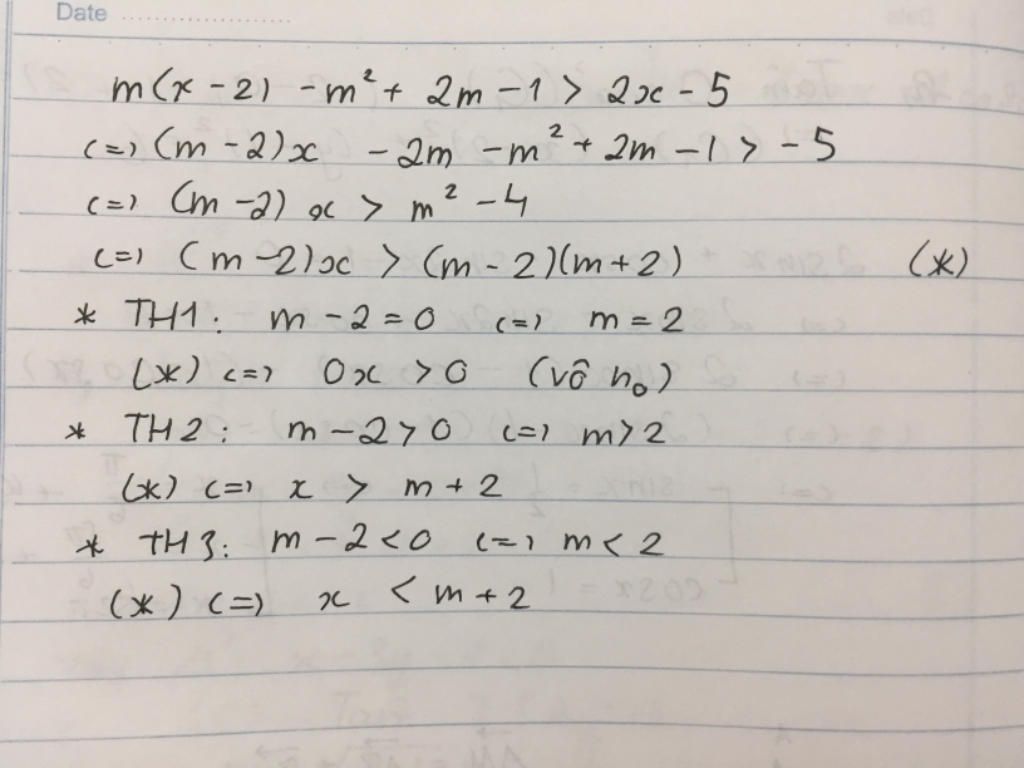 Date
m(x - 2) - m² + 2m - 1 > 2x - 5
<=> (m - 2)x - 2m - m² + 2m - 1 > - 5
<=> (m - 2) x > m² - 4
<=> (m - 2)x > (m - 2)(m + 2) (*)
* TH1: m - 2 = 0 <=> m = 2
(*) <=> 0x > 0 (vô n₀)
* TH2: m - 2 > 0 <=> m > 2
(*) <=> x > m + 2
* TH3: m - 2 < 0 <=> m < 2
(*) <=> x < m + 2